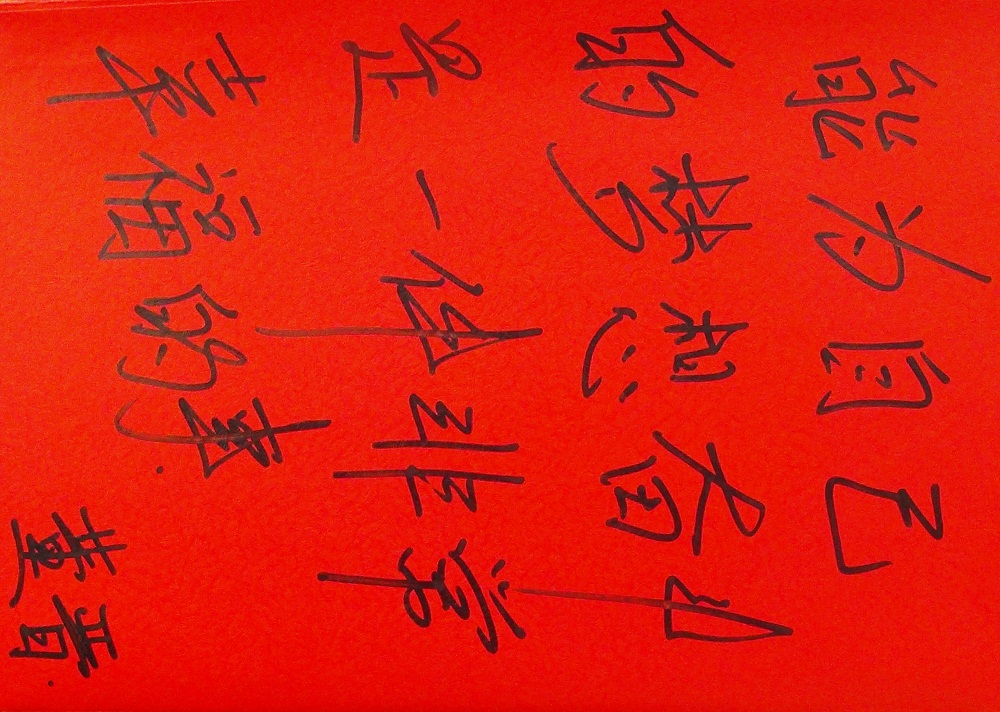 能为自己
的梦想奋斗
是一件非常
幸福的事.
董晋.